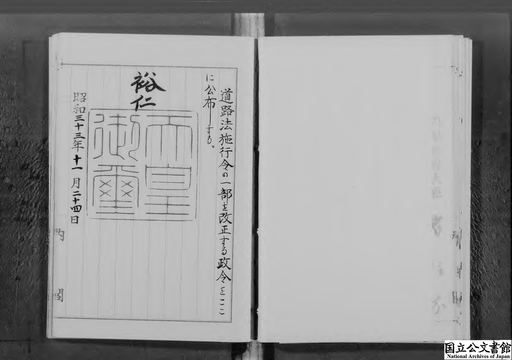 道路法施行令の一部を改正する政令をここ
に公布する。
裕仁
天皇御璽
昭和三十三年十一月二十四日
内閣
国立公文書館
National Archives of Japan